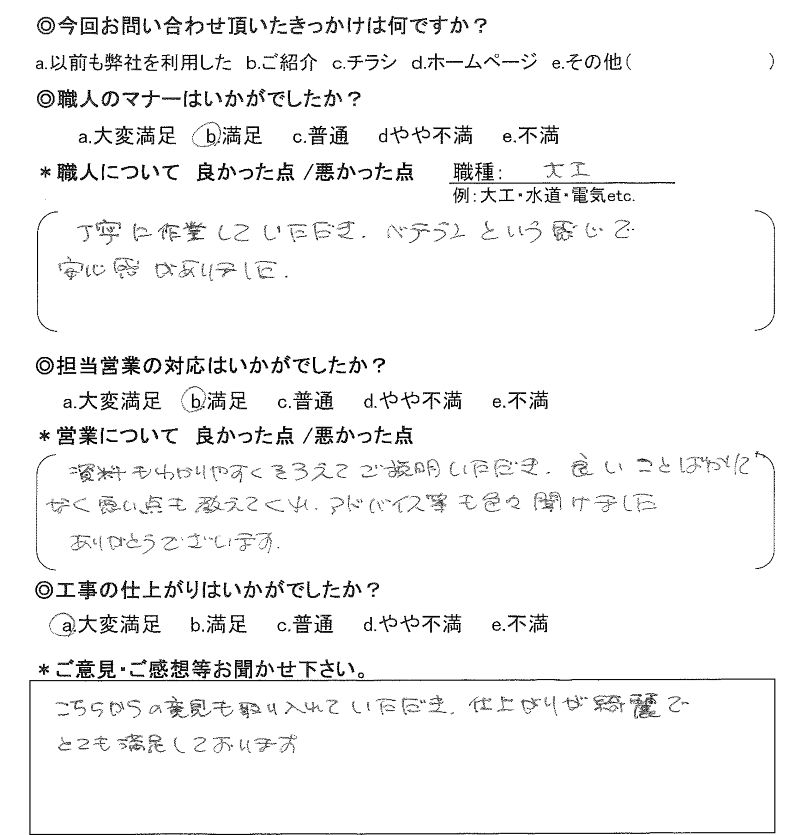 ◎今回お問い合わせ頂いたきっかけは何ですか？
a.以前も弊社を利用した b.ご紹介 c.チラシ d.ホームページ e.その他( )
◎職人のマナーはいかがでしたか？
a.大変満足 b.満足 c.普通 dやや不満 e.不満
＊職人について 良かった点 /悪かった点 職種： 大工
例：大工・水道・電気etc.
丁寧に作業していただき、ベテランという感じで
安心感がありました.
◎担当営業の対応はいかがでしたか？
a.大変満足 b.満足 c.普通 d.やや不満 e.不満
＊営業について 良かった点 /悪かった点
資料もわかりやすくそろえてご説明いただき、良いことばかりで
なく悪い点も教えてくれ、アドバイス等も色々聞けました
ありがとうございます.
◎工事の仕上がりはいかがでしたか？
a.大変満足 b.満足 c.普通 d.やや不満 e.不満
＊ご意見・ご感想等お聞かせ下さい。
こちらからの意見も取り入れていただき、仕上がりが綺麗で
とても満足しております